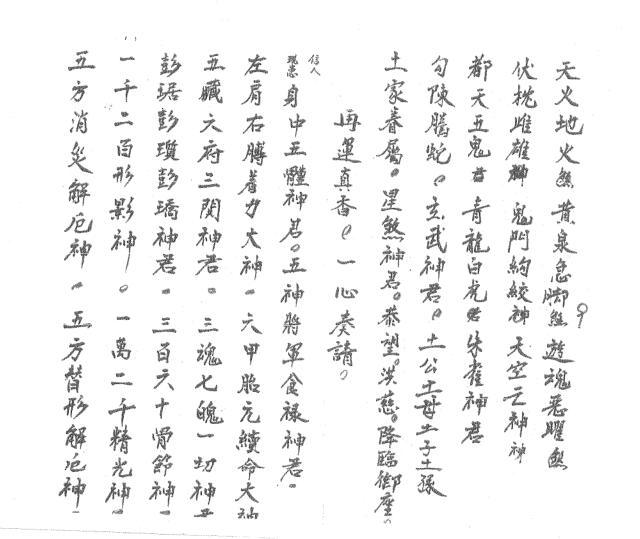 天火地火煞黃泉急脚煞遊魂惡曜煞
伏枕雌雄神鬼門絞神天空亡神神
都天五鬼君青龍白虎君朱雀神君
勾陳騰蛇。玄武神君。土公土母土子土孫
土家眷屬。星煞神君。恭望。洪慈。降臨御座。
再運真香。一心奏請。
信人現患身中五體神君。五神將軍食祿神君。
左肩右膊着力大神。六甲胎元續命大神
五臟六府三関神君。三魂七魄一切神君
彭琚彭瓆彭瑀神君。三百六十骨節神。
一千二百形影神。一萬二千精光神。
五方消災解厄神。五方替形解厄神。